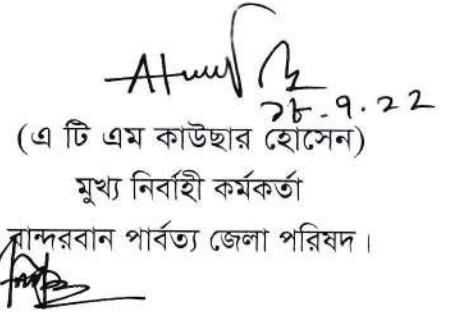 ২৮.৭.২২
(এ টি এম কাউছার হোসেন)
মুখ্য নির্বাহী কর্মকর্তা
বান্দরবান পার্বত্য জেলা পরিষদ।